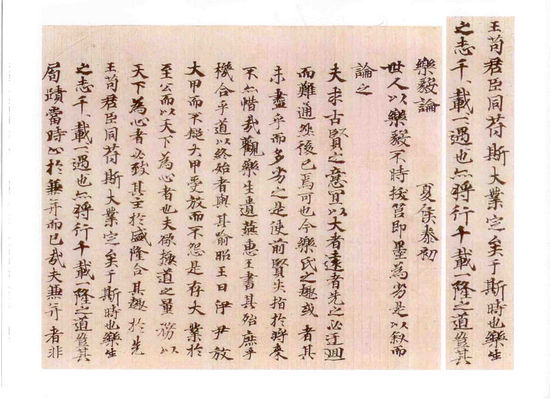 王苟君臣同符斯大業定矣于斯時也樂生
之志千載一遇也亦將行千載一隆之道豈其
樂毅論 夏侯泰初
世人以樂毅不時拔莒即墨為劣是以叙而
論之
夫求古賢之意宜以大者遠者先之必迂迴
而難通然後已焉可也今樂氏之趣或者其
未盡乎而多劣之是使前賢失指於將來
不亦惜哉觀樂生遺燕惠王書其殆庶乎
機合乎道以終始者與其喻昭王曰伊尹放
大甲而不疑大甲受放而不怨是存大業於
至公而以天下為心者也夫欲極道之量務以
天下為心者必致其主於盛隆合其趣於先
王苟君臣同符斯大業定矣于斯時也樂生
之志千載一遇也亦將行千載一隆之道豈其
局蹟當時止於兼并而已哉夫兼并者非